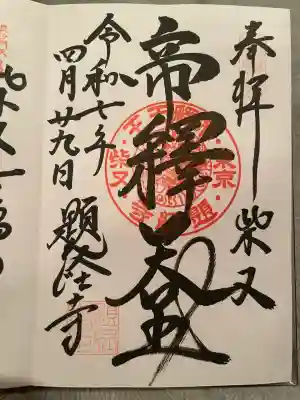 奉拝 柴又
帝釋天王
令和七年
四月廿九日 題経寺
東京
柴又